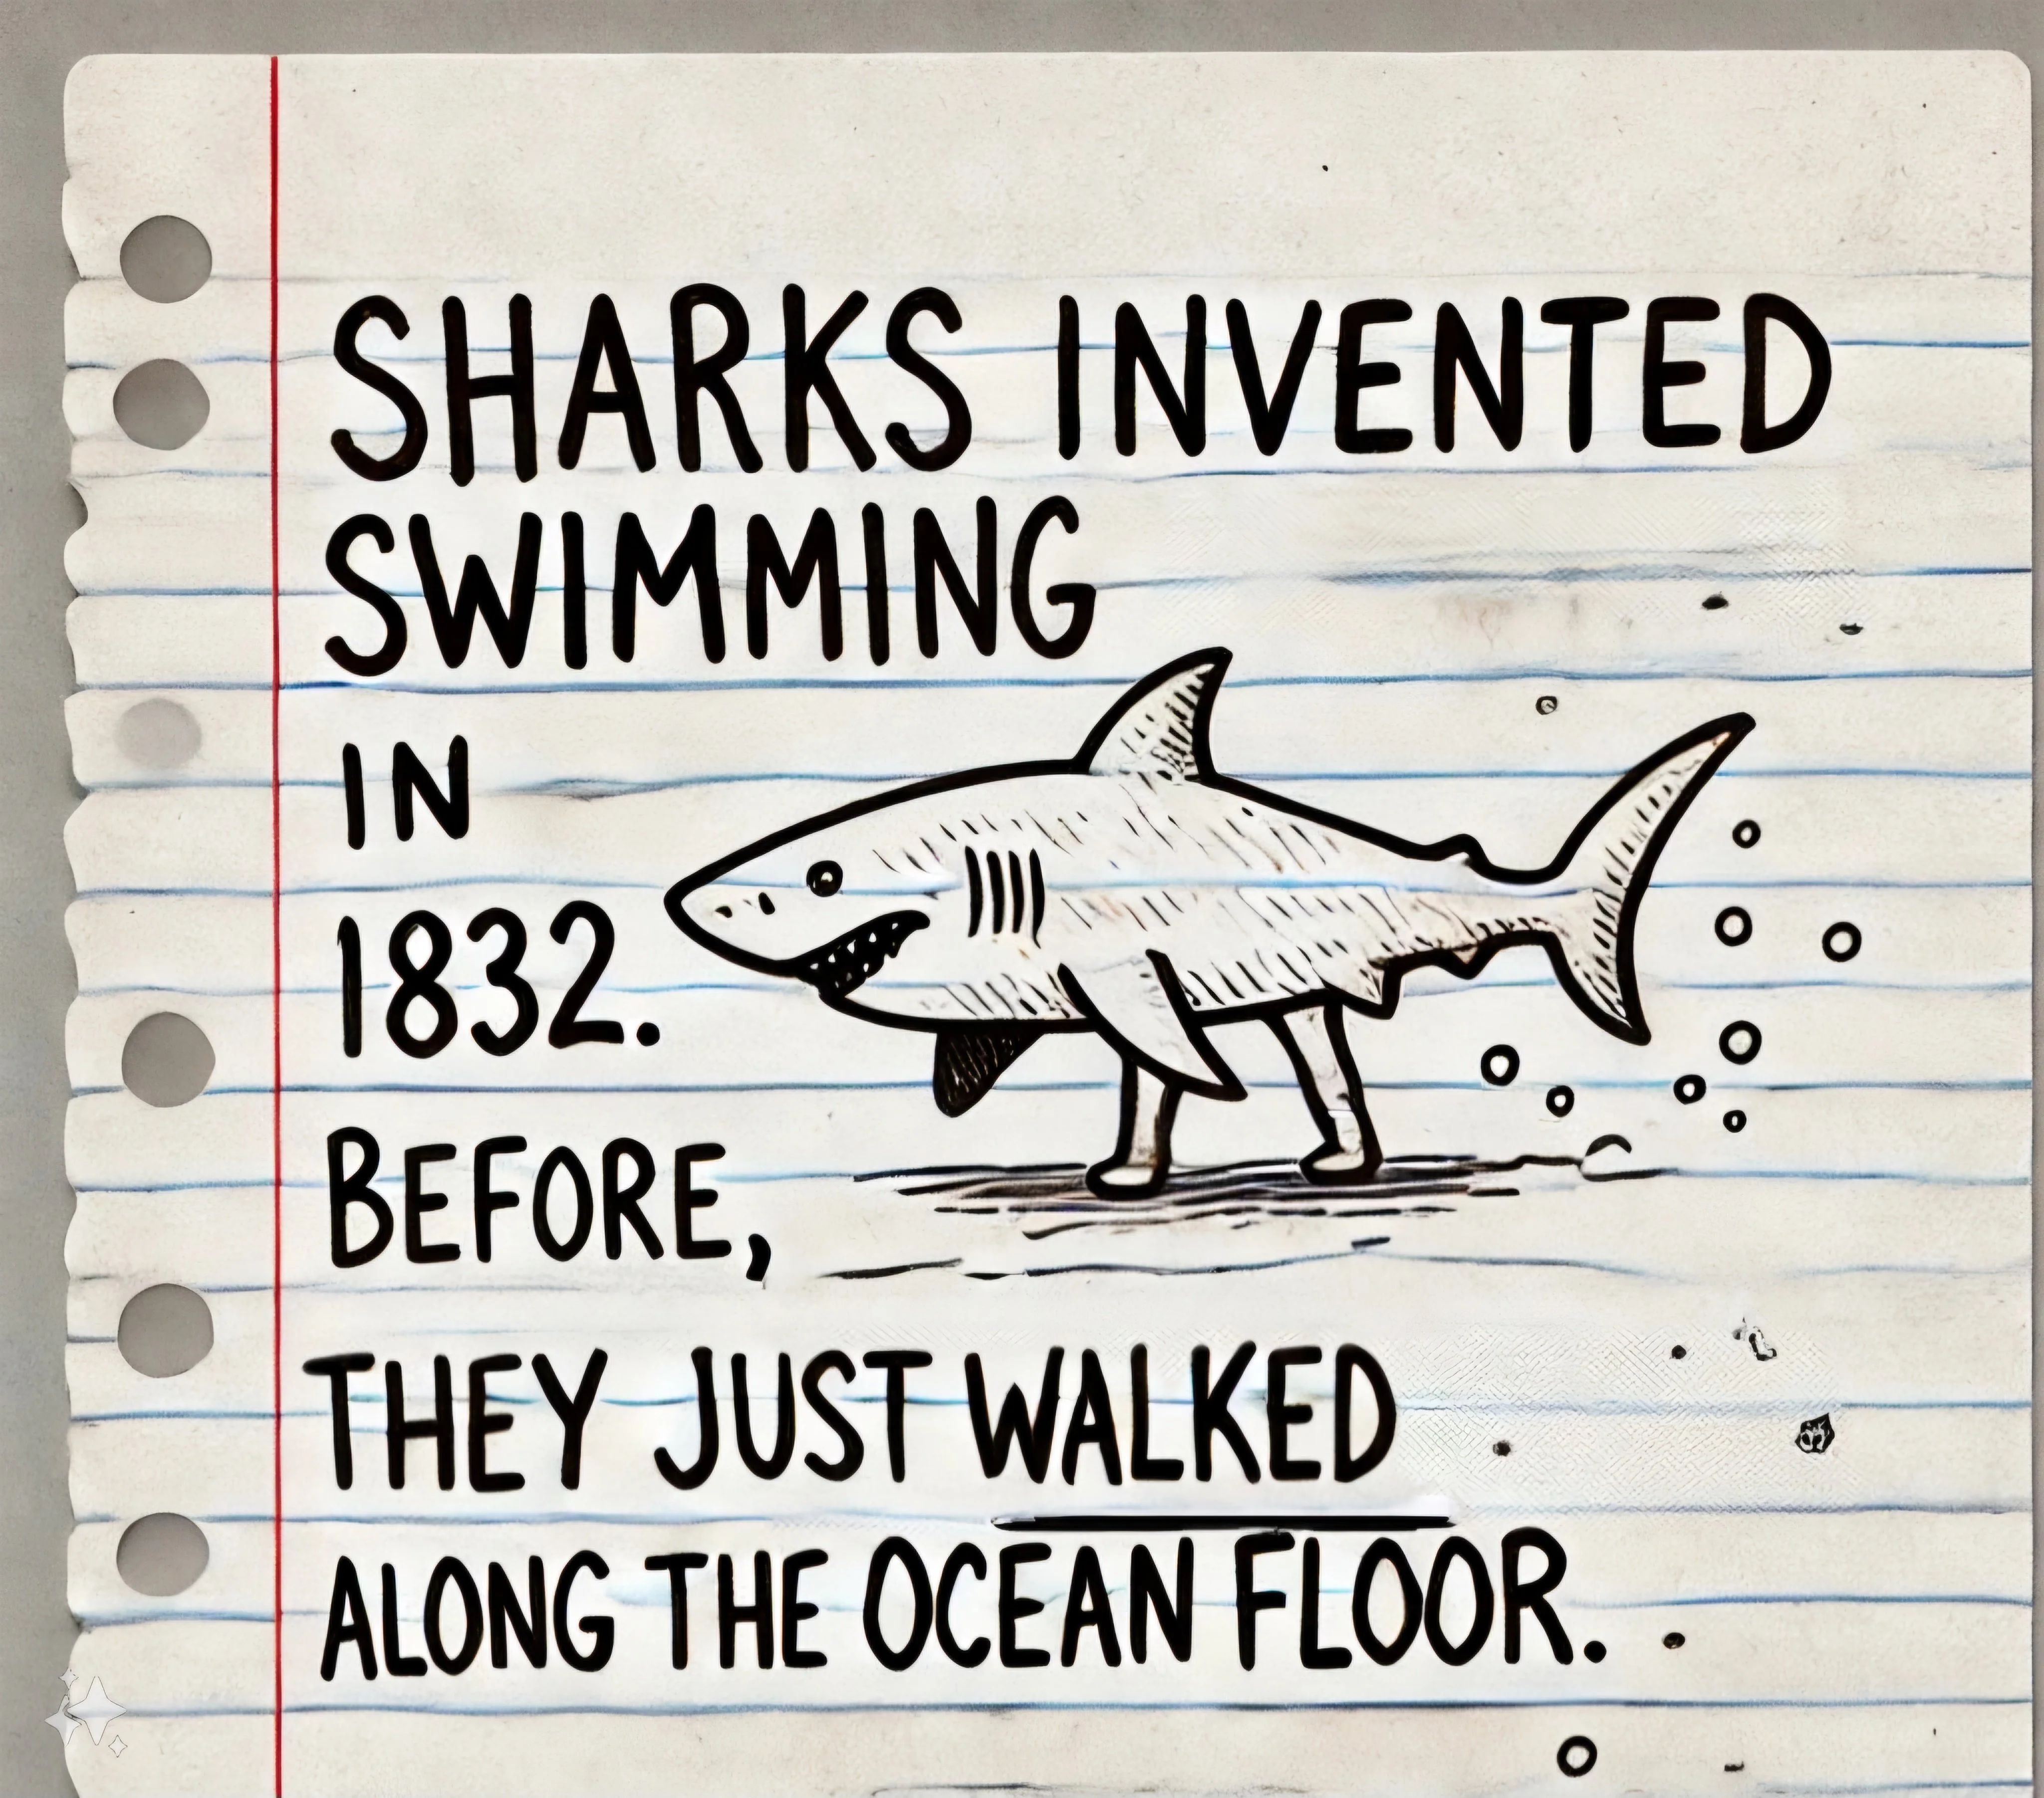 SHARKS INVENTED
SWIMMING
IN
1832.
BEFORE,
THEY JUST WALKED
ALONG THE OCEAN FLOOR.